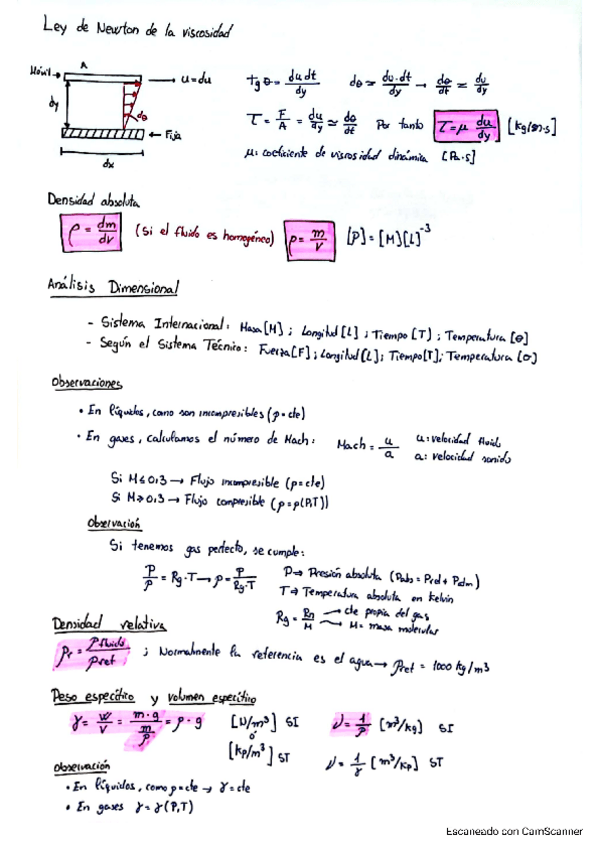 Ley de Newton de la viscosidad
Móvil → A → u = du
dy dθ ← Fija
dx
tg θ = du dt / dy dθ ≈ du·dt / dy → dθ/dt ≈ du/dy
τ = F/A = du/dy ≈ dθ/dt Por tanto τ = μ du/dy [kg/m·s]
μ: coeficiente de viscosidad dinámica [Pa·s]
Densidad absoluta
ρ = dm/dv (Si el fluido es homogéneo) ρ = m/V [ρ] = [M][L]⁻³
Análisis Dimensional
- Sistema Internacional: Masa [M] ; Longitud [L] ; Tiempo [T] ; Temperatura [θ]
- Según el Sistema Técnico: Fuerza [F] ; Longitud [L] ; Tiempo [T] ; Temperatura [σ]
Observaciones
• En líquidos, como son incompresibles (ρ = cte)
• En gases, calculamos el número de Mach: Mach = u/a u: velocidad fluido
a: velocidad sonido
Si M ≤ 0,3 → Flujo incompresible (ρ = cte)
Si M > 0,3 → Flujo compresible (ρ = ρ(P,T))
Observación
Si tenemos gas perfecto, se cumple:
P/ρ = Rg·T → ρ = P/Rg·T P → Presión absoluta (Pabs = Prel + Patm)
T → Temperatura absoluta en Kelvin
Rg = Rn/M → cte propia del gas
→ M = masa molecular
Densidad relativa
ρr = ρfluido/ρref ; Normalmente la referencia es el agua → ρref = 1000 kg/m3
Peso específico y volumen específico
γ = W/V = m·g / m/ρ = ρ·g [N/m³] SI ν = 1/ρ [m³/kg] SI
ó
[kp/m³] ST ν = 1/γ [m³/kp] ST
Observación
• En líquidos, como ρ = cte → γ = cte
• En gases γ = γ(P,T)
Escaneado con CamScanner